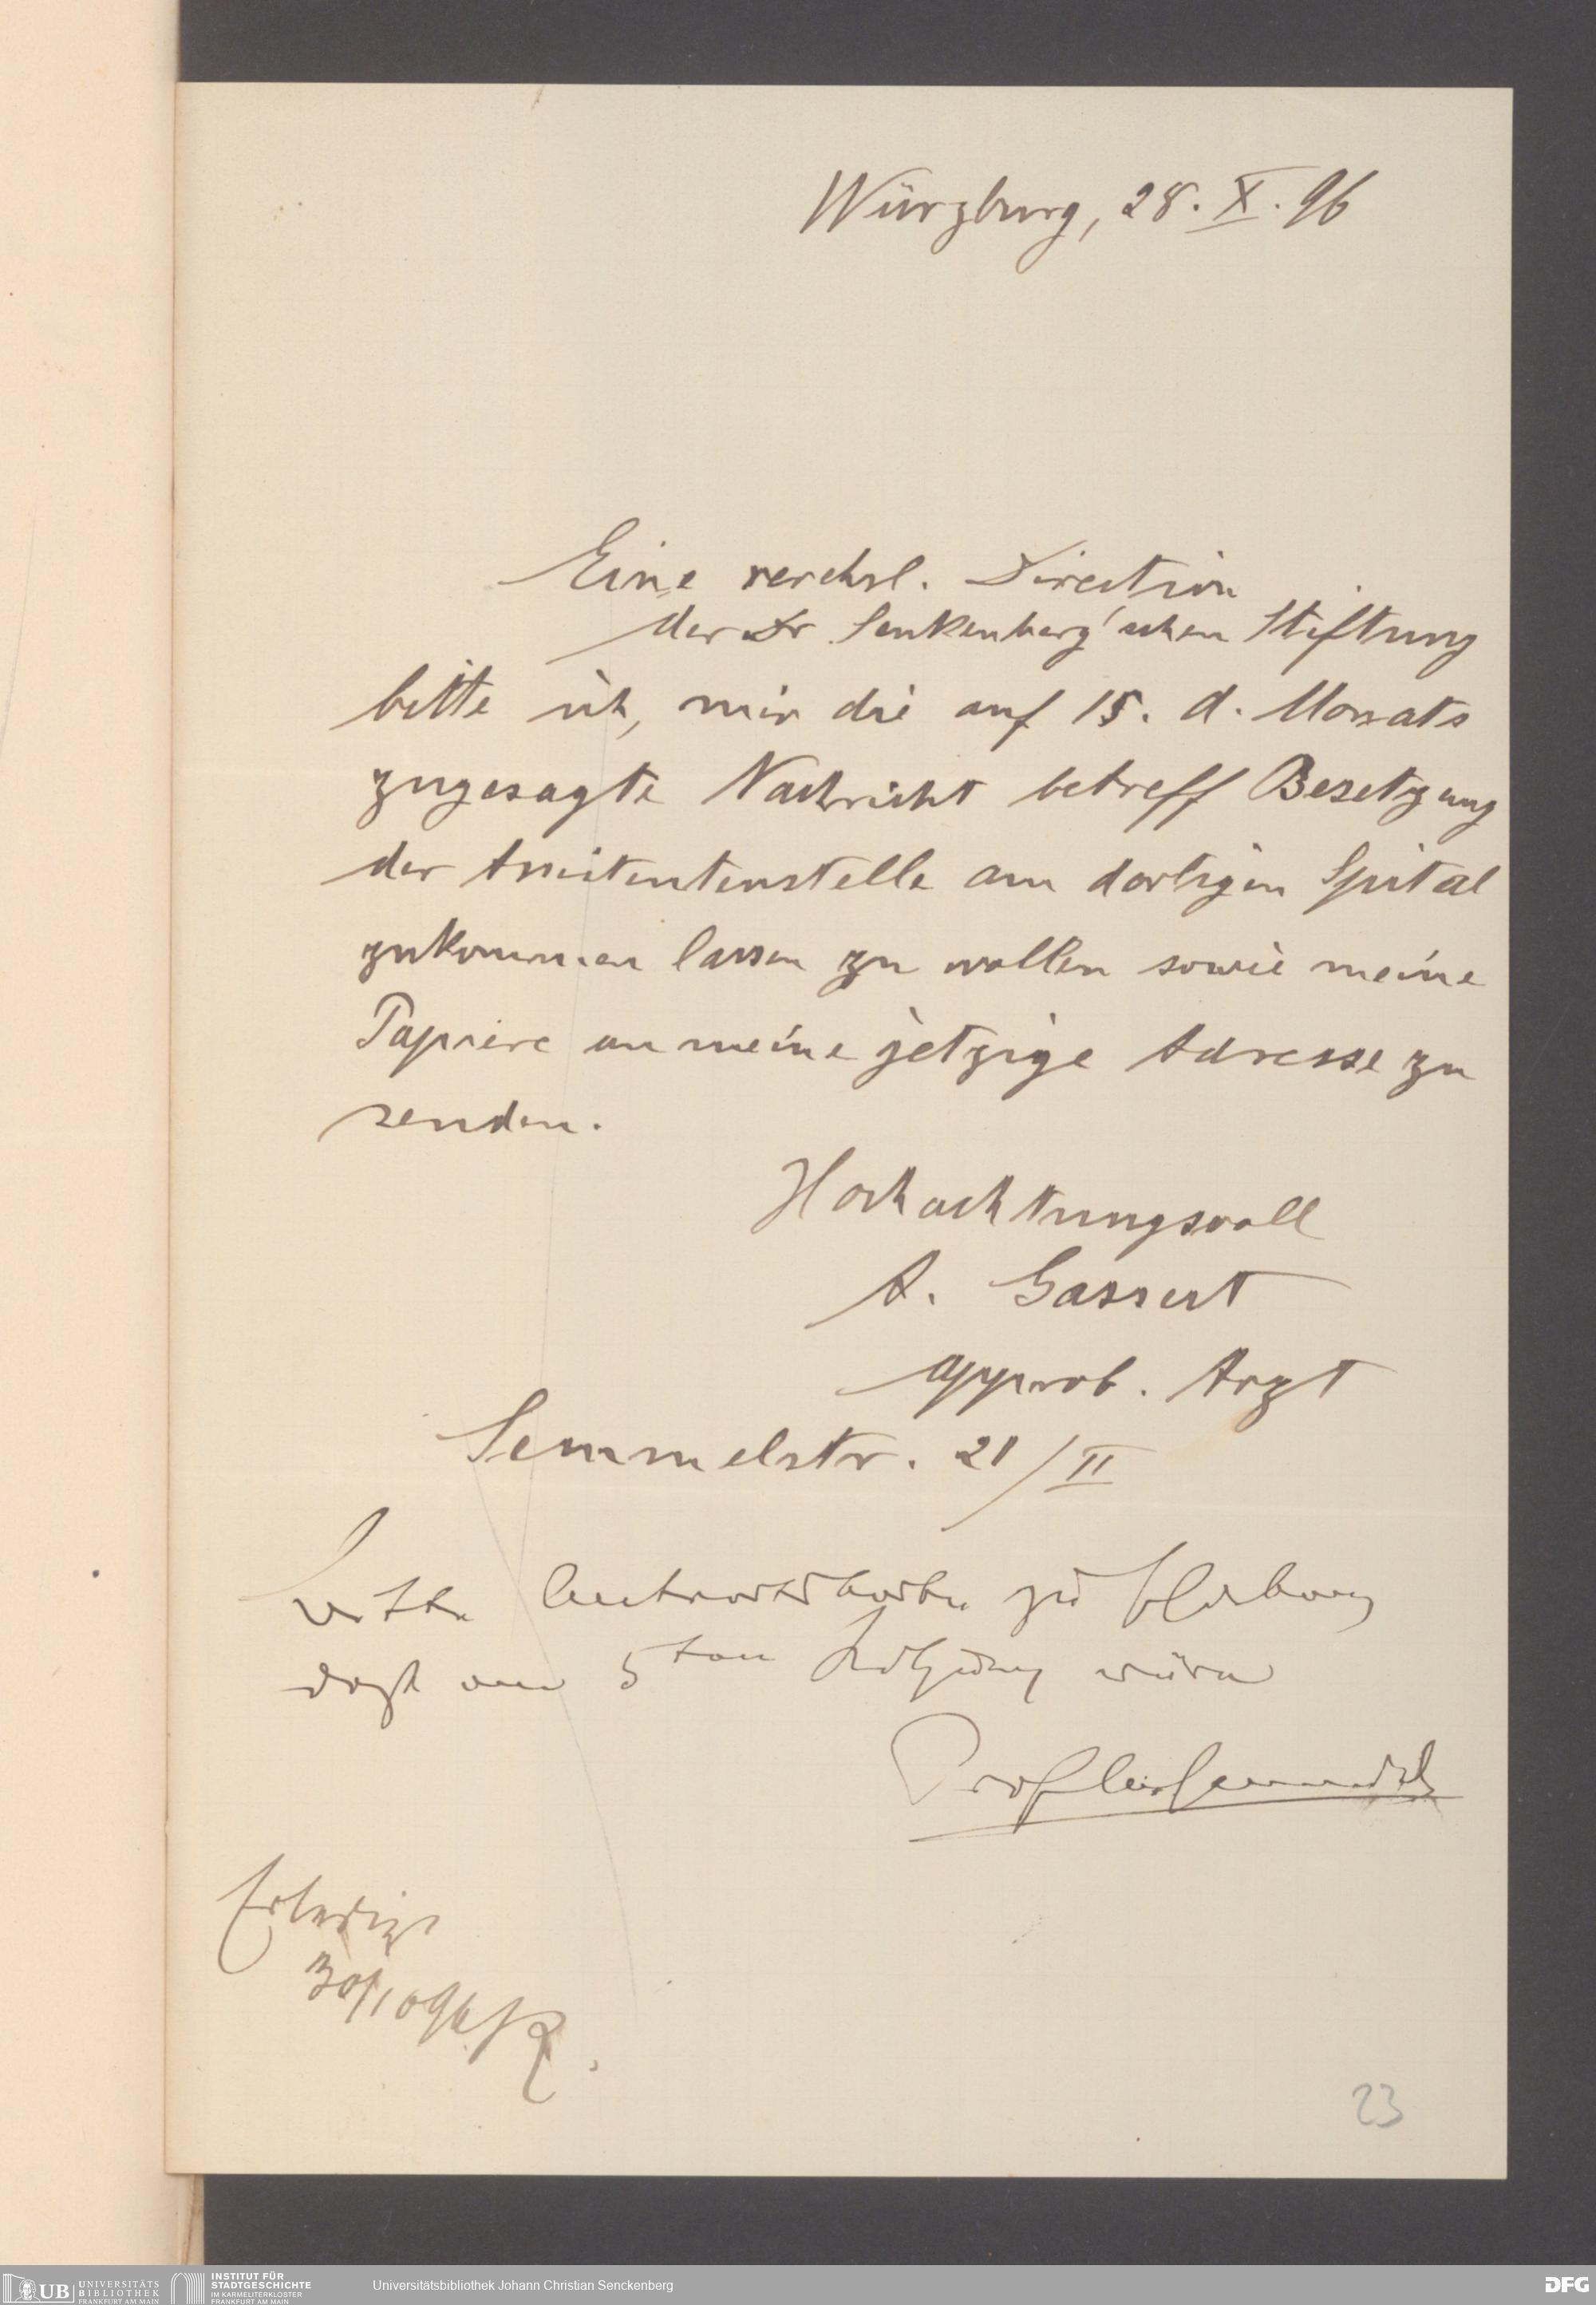 Würzburg, 28. X. 96
Eine verehrl. Direction
der Dr Senkenberg'schen Stiftung
bitte ich, mir die auf 15. d. Monats
zugesagte Nachricht betreff Besetzung
der Assistentenstelle am dortigen Spital
zukommen lassen zu wollen sowie meine
Papiere an meine jetzige Adresse zu
senden.
Hochachtungsvoll
A. Gassert
approb. Arzt
Semmelstr. 21/II
bitte zu
daß am 5ten Sitzung wäre
Prof
Erledigt
30/10 96
23
UB UNIVERSITÄTS BIBLIOTHEK FRANKFURT AM MAIN
INSTITUT FÜR STADTGESCHICHTE IM KARMELITERKLOSTER FRANKFURT AM MAIN
Universitätsbibliothek Johann Christian Senckenberg
DFG